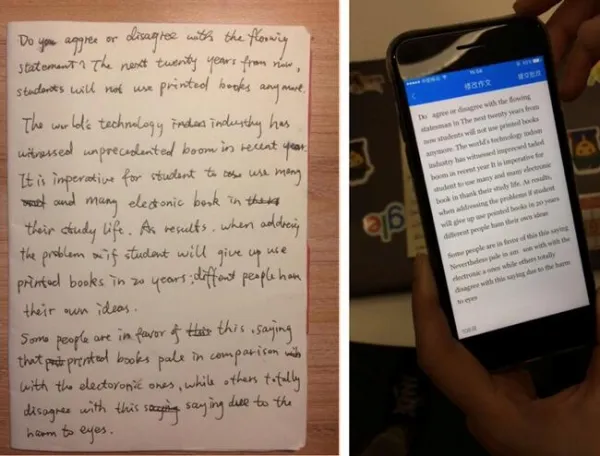 Do you aggree or disagree with the flowing
statement? The next twenty years from now,
students will not use printed books any more.
The world's technology industry has
witnessed unprecedented boom in recent year
It is imperative for student to use many
and many electonic book in
their study life. As results, when addresing
the problem if student will give up use
printed books in 20 years; diffent people have
their own ideas.
Some people are in favor of this, saying
that printed books pale in comparison
with the electoronic ones, while others totally
disagree with this saying due to the
harm to eyes.
修改作文 提交批改
Do agree or disagree with the flowing
statesman in The next twenty years from
now students will not use printed books
anymore. The world's technology indom
industry has witnessed imprewed taded
boom in recent year It is imperative for
student to use many and many electronic
book in thank their study life. As results,
when addressing the problems if student
will give up use printed books in 20 years
different people ham their own ideas
Some people are in favor of this this saying
Nevertheless pale in am son with with the
electronic a ones while others totally
disagree with this saying due to the harm
to eyes
gle